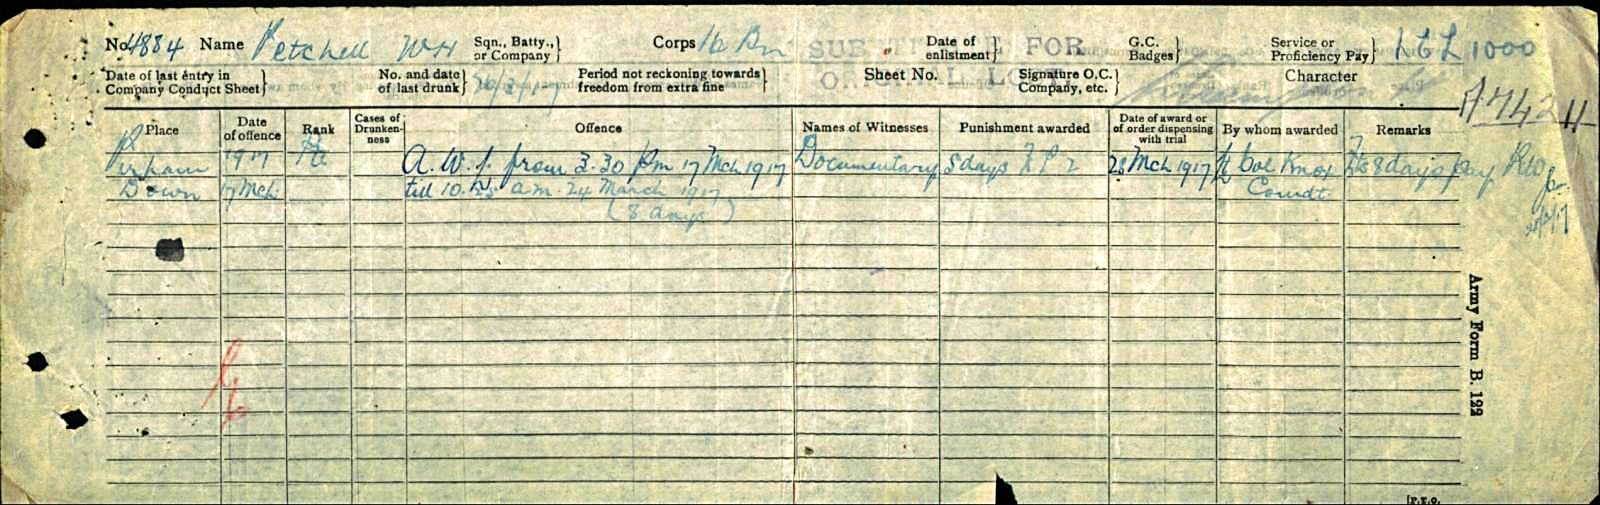 No. 4884 Name Petchell W H Sqn., Batty., or Company} Corps 16 Bn Date of enlistment} G.C. Badges} Service or Proficiency Pay} 1000
SUBSTITUTE FOR
ORIGINAL LOST
Date of last entry in Company Conduct Sheet} No. and date of last drunk} Period not reckoning towards freedom from extra fine} Sheet No. Signature O.C. Company, etc.} Character
Place Date of offence Rank Cases of Drunkenness Offence Names of Witnesses Punishment awarded Date of award or of order dispensing with trial By whom awarded Remarks
Perham 1917 Pte A.W.L from 3.30 Pm 17 Mch 1917 Documentary 8 days F P 2 28 Mch 1917 Lt Col Knox 8 days pay
Down 17 Mch till 10. a.m. 24 March 1917 Comdt
(8 days)
Army Form B. 122
[P.T.O.